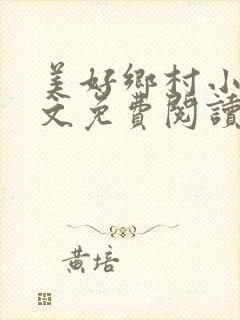 美好鄉村小
文免費閱讀
黃培